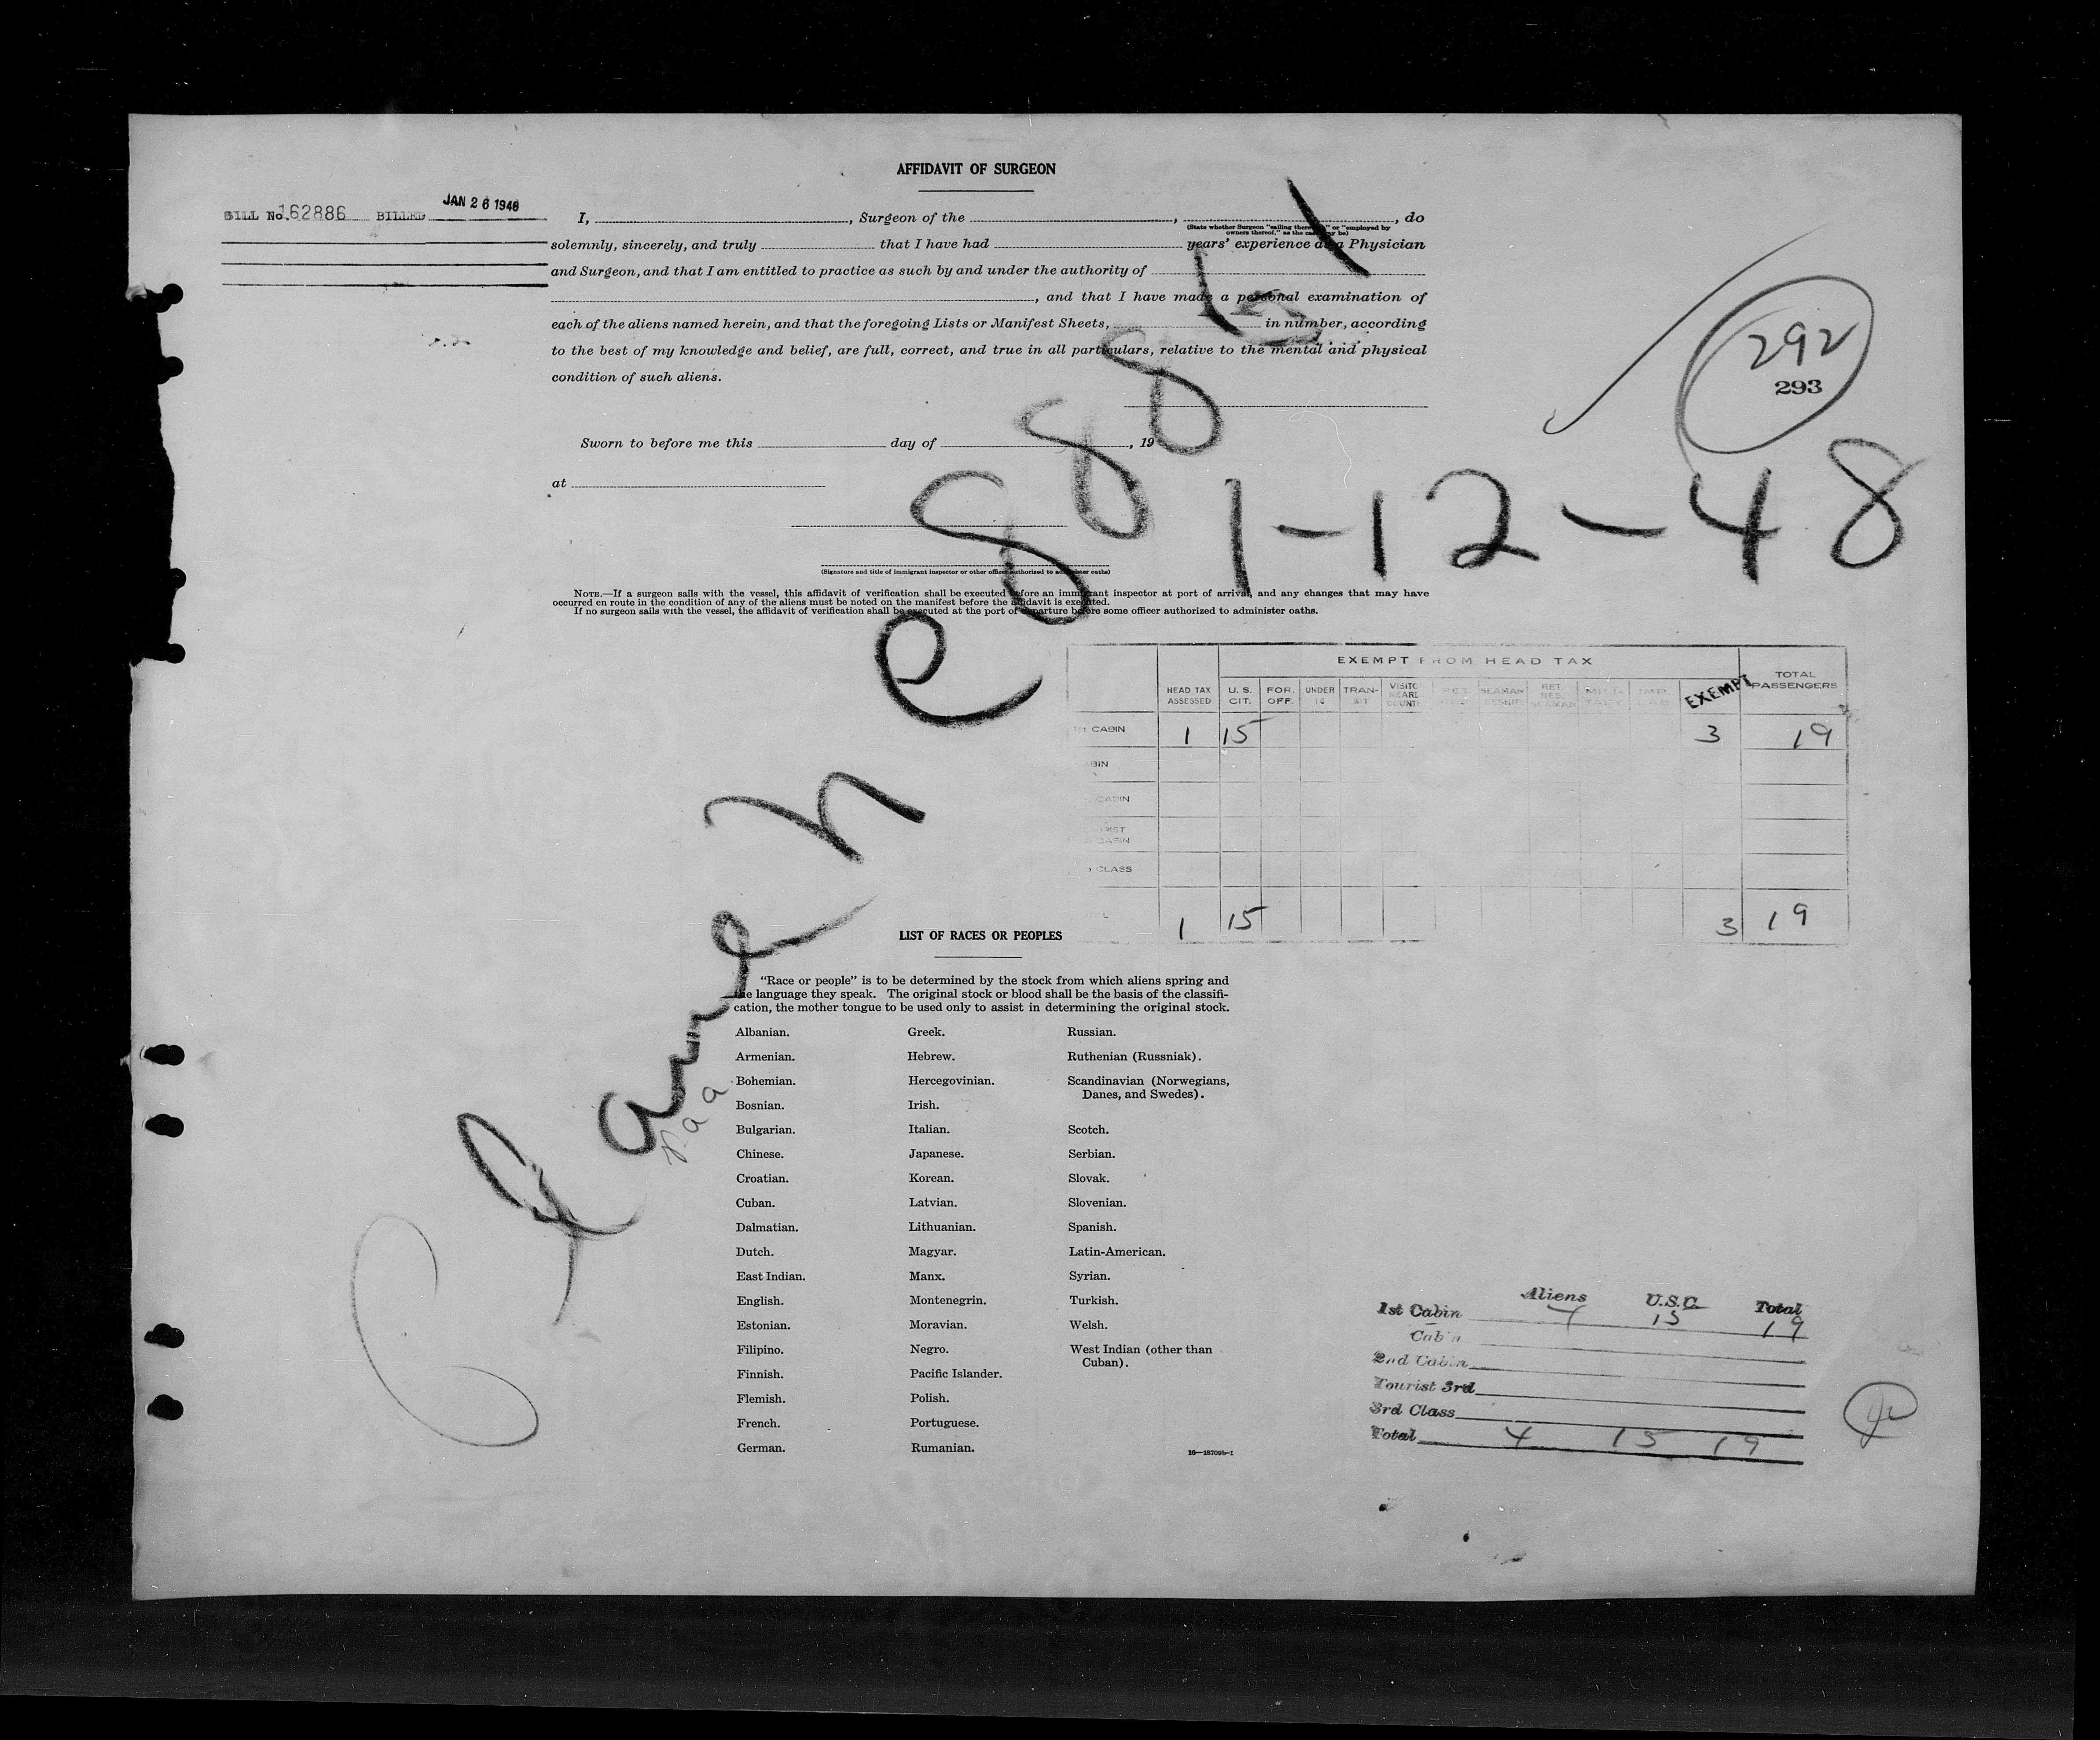 AFFIDAVIT OF SURGEON
BILL No. 162886 BILLED JAN 26 1948
I, , Surgeon of the , , do
(State whether Surgeon "sailing therewith" or "employed by
owners thereof," as the case may be)
solemnly, sincerely, and truly that I have had years' experience as a Physician
and Surgeon, and that I am entitled to practice as such by and under the authority of
, and that I have made a personal examination of
each of the aliens named herein, and that the foregoing Lists or Manifest Sheets, in number, according
to the best of my knowledge and belief, are full, correct, and true in all particulars, relative to the mental and physical
condition of such aliens.
292
293
Sworn to before me this day of , 19
at
1-12-48
(Signature and title of immigrant inspector or other officer authorized to administer oaths)
NOTE.—If a surgeon sails with the vessel, this affidavit of verification shall be executed before an immigrant inspector at port of arrival, and any changes that may have
occurred en route in the condition of any of the aliens must be noted on the manifest before the affidavit is executed.
If no surgeon sails with the vessel, the affidavit of verification shall be executed at the port of departure before some officer authorized to administer oaths.
EXEMPT FROM HEAD TAX
HEAD TAX ASSESSED U. S. CIT. FOR. OFF. UNDER 16 TRAN-SIT EXEMPT TOTAL PASSENGERS
1ST CABIN 1 15 3 19
CABIN
CABIN
CABIN
CLASS
1 15 3 19
Clare
LIST OF RACES OR PEOPLES
"Race or people" is to be determined by the stock from which aliens spring and
the language they speak. The original stock or blood shall be the basis of the classifi-
cation, the mother tongue to be used only to assist in determining the original stock.
Albanian.
Armenian.
Bohemian.
Bosnian.
Bulgarian.
Chinese.
Croatian.
Cuban.
Dalmatian.
Dutch.
East Indian.
English.
Estonian.
Filipino.
Finnish.
Flemish.
French.
German.
Greek.
Hebrew.
Hercegovinian.
Irish.
Italian.
Japanese.
Korean.
Latvian.
Lithuanian.
Magyar.
Manx.
Montenegrin.
Moravian.
Negro.
Pacific Islander.
Polish.
Portuguese.
Rumanian.
Russian.
Ruthenian (Russniak).
Scandinavian (Norwegians,
Danes, and Swedes).
Scotch.
Serbian.
Slovak.
Slovenian.
Spanish.
Latin-American.
Syrian.
Turkish.
Welsh.
West Indian (other than
Cuban).
16—18709b-1
Aliens U.S.C. Total
1st Cabin 4 15 19
Cabin
2nd Cabin
Tourist 3rd
3rd Class
Total 4 15 19